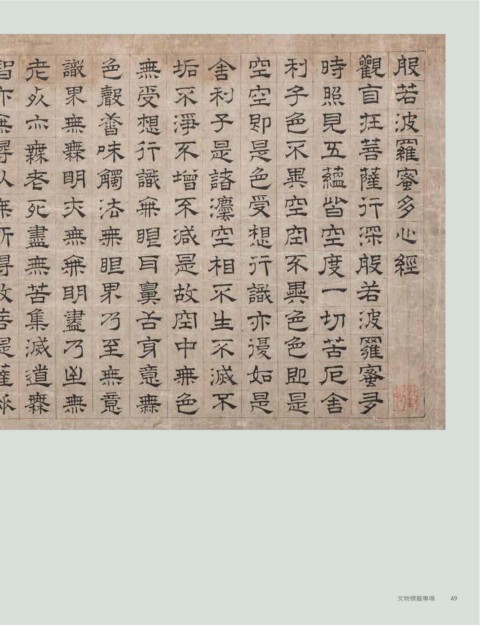 般若波羅蜜多心經
觀自在菩薩行深般若波羅蜜多
時照見五蘊皆空度一切苦厄舍
利子色不異空空不異色色即是
空空即是色受想行識亦復如是
舍利子是諸灋空相不生不滅不
垢不淨不增不減是故空中無色
無受想行識無眼耳鼻舌身意無
色聲香味觸法無眼界乃至無意
識界無無明亦無無明盡乃至無
老死亦無老死盡無苦集滅道無
智亦無得以無所得故菩提薩
文物標籤專場 49